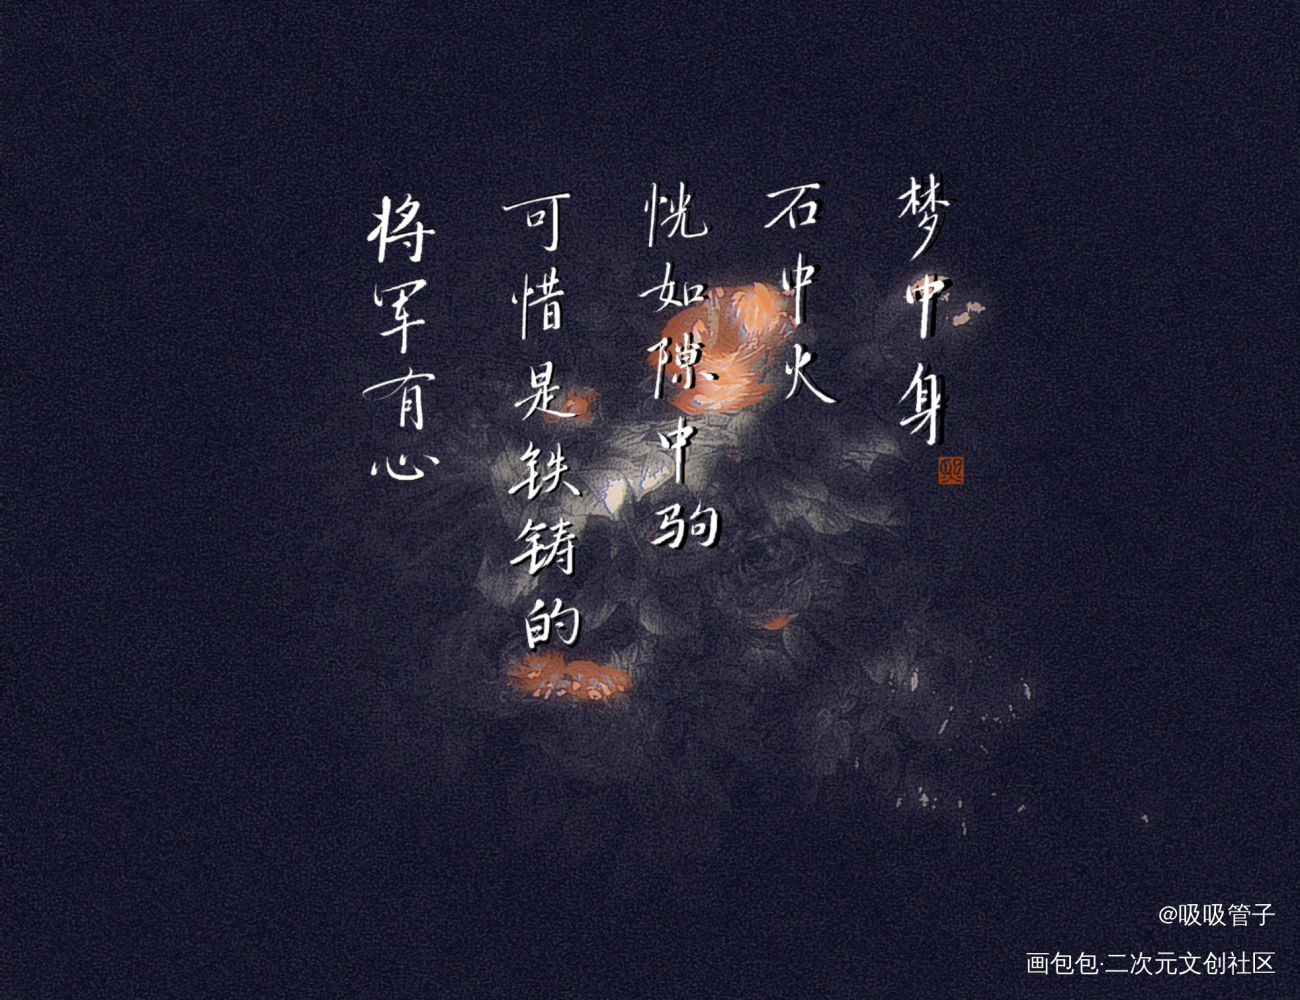 梦中身
石中火
恍如隙中驹
可惜是铁铸的
将军有心
@吸吸管子
画包包·二次元文创社区